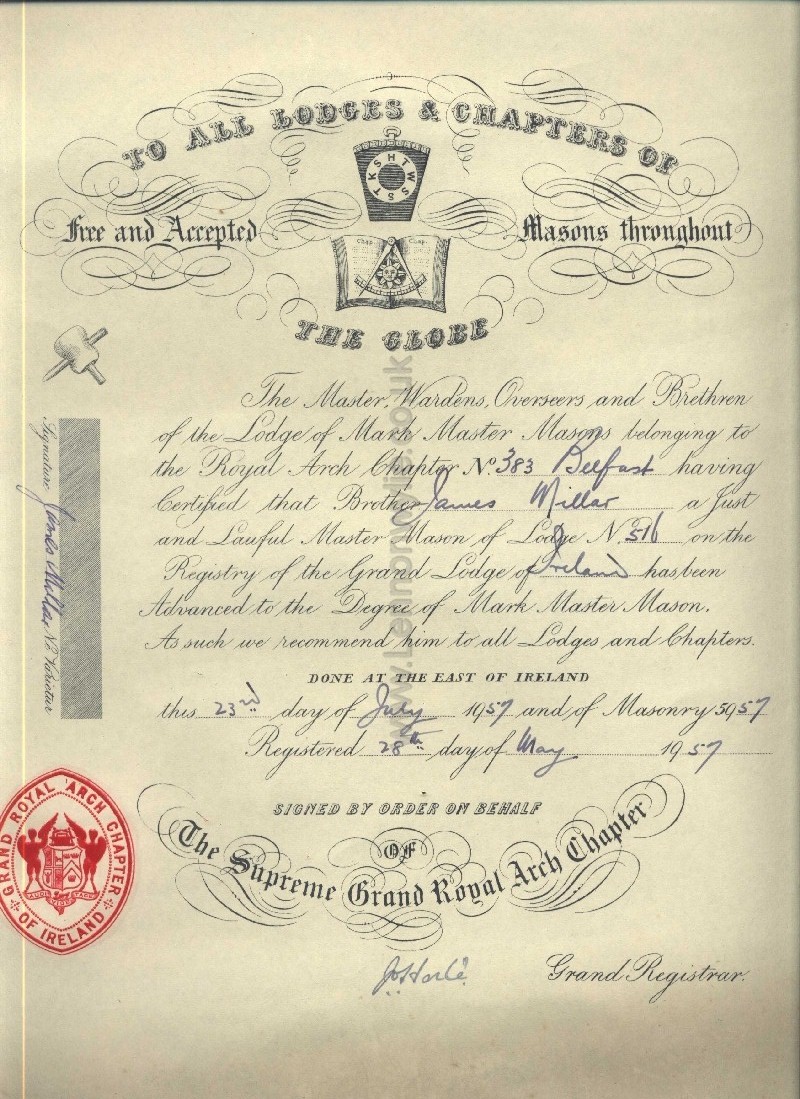 TO ALL LODGES & CHAPTERS OF
H T W S S T K S
Free and Accepted Masons throughout
Chap. Chap.
THE GLOBE
The Master, Wardens, Overseers and Brethren
of the Lodge of Mark Master Masons belonging to
the Royal Arch Chapter No. 383 Belfast having
Certified that Brother James Millar a Just
and Lauful Master Mason of Lodge N. 516 on the
Registry of the Grand Lodge of Ireland has been
Advanced to the Degree of Mark Master Mason.
As such we recommend him to all Lodges and Chapters.
DONE AT THE EAST OF IRELAND
this 23rd day of July 1957 and of Masonry 5957
Registered 28th day of May 1957
SIGNED BY ORDER ON BEHALF
OF
The Supreme Grand Royal Arch Chapter
Grand Registrar.
Signature James Millar Ne Varietur
GRAND ROYAL ARCH CHAPTER OF IRELAND
www.LennonWylie.co.uk